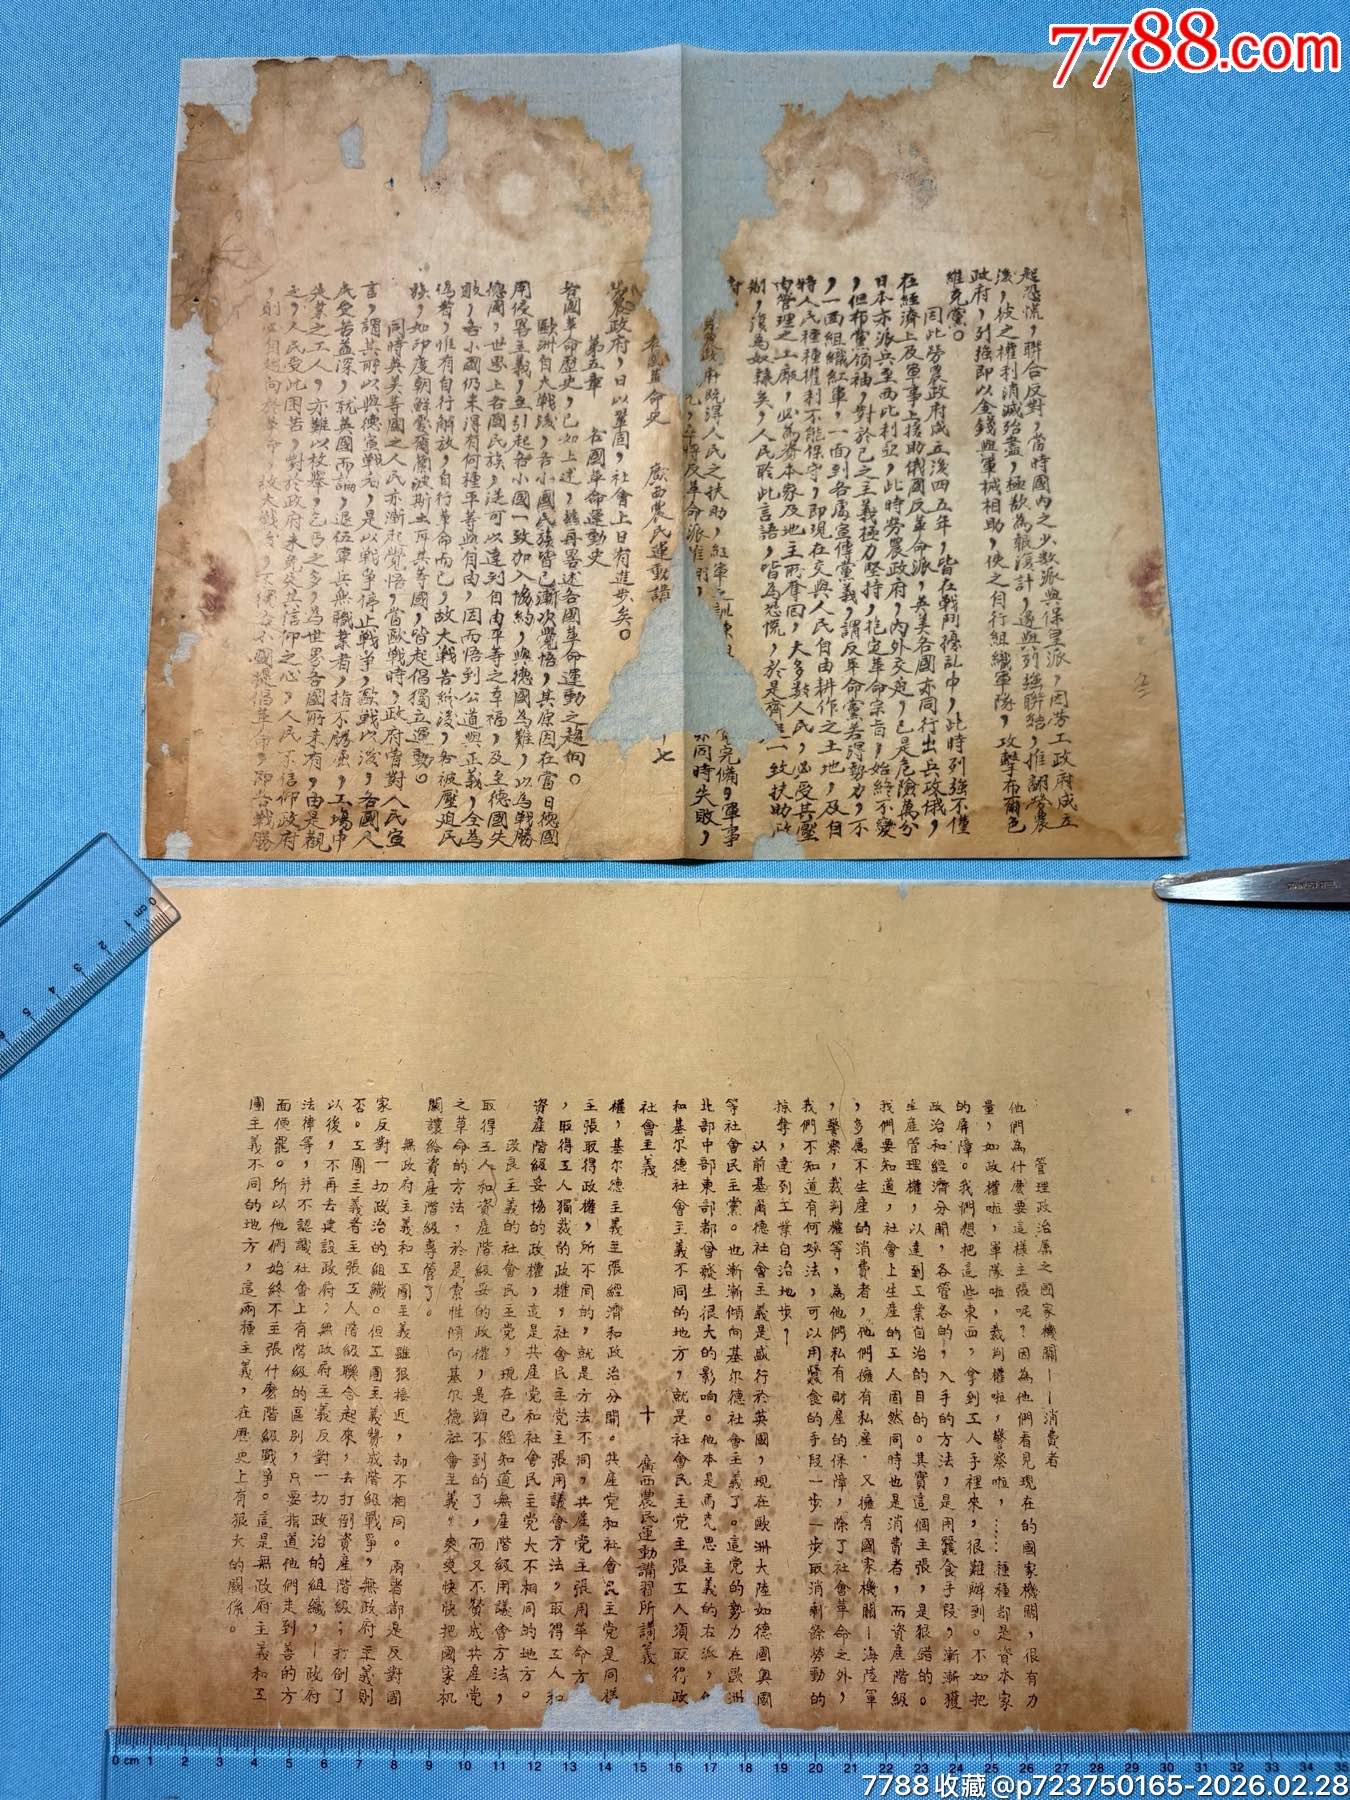 7788.com
起恐慌，聯合反對，當時國內之少數派與保皇派，因勞工政府成立
後，彼之權利消滅殆盡，極欲為報復計，遂與列強聯結，推翻勞農
政府，列強即以金錢與軍械相助，使之自行組織軍隊，攻擊布爾色
維克黨。
因此勞農政府成立後四五年，皆在戰鬥擾亂中，此時列強不僅
在經濟上及軍事上援助俄國反革命派，英美各國亦同行出兵攻俄，
日本亦派兵至西比利亞，此時勞農政府，內外交迫，已是危險萬分
，但布黨領袖，對於已之主義極力堅持，抱定革命宗旨，始終不變
，一面組織紅軍，一面到各處宣傳黨義，謂反革命黨若得勢力，不
特人民種種權利不能保守，即現在交與人民自由耕作之土地，及自
由管理之工廠，必為資本家及地主所奪回，大多數人民，必受其壓
制，復為奴隸矣，人民聆此言語，皆為恐慌，於是齊 一致扶助政
府
農政府既得人民之扶助，紅軍之訓練 完備，軍事
反革命派 亦同時失敗，
革命史 廣西農民運動講 十七
勞農政府，日以鞏固，社會上日有進步矣。
第五章 各國革命運動史
各國革命歷史，已如上述，茲再畧述各國革命運動之趨向。
歐洲自大戰後，各小國民族皆已漸次覺悟，其原因在當日德國
用侵畧主義，至引起各小國一致加入協約，與德國為難，以為戰勝
德國，世界上各國民族，從可以達到自由平等之幸福，及至德國失
敗，各小國仍未得有何種平等與自由，因而悟到公道與正義，全為
偽者，惟有自行解放，自行革命而已，故大戰告終後，各被壓迫民
族，如印度朝鮮愛爾蘭波斯土耳其等國，皆起倡獨立運動。
同時英美等國之人民亦漸起覺悟，當歐戰時，政府嘗對人民宣
言，謂其所以與德宣戰者，是以戰爭停止戰爭，歐戰以後，各國人
民受苦益深，就英國而論，退伍軍兵無職業者，指不勝屈，工場中
失業之工人，亦難以枚舉，乞丐之多，為世界各國所未有，由是觀
之，人民受此困苦，對於政府未免失其信仰之心，人民不信仰政府
，則必自趨向於革命，故大戰後，不獨各小國提倡革命，即各戰勝
管理政治屬之國家機關——消費者
他們為什麼要這樣主張呢？因為他們看見現在的國家機關，很有力
量，如政權啦，軍隊啦，裁判權啦，警察啦，……種種都是資本家
的屏障。我們想把這些東西，拿到工人手裡來，很難辦到。不如把
政治和經濟分開，各管各的，入手的方法，是用蠶食手段，漸漸獲
生產管理權，以達到工業自治的目的。其實這個主張，是狠錯的。
我們要知道，社會上生產的工人固然同時也是消費者，而資產階級
，多屬不生產的消費者，他們擁有私產，又擁有國家機關—海陸軍
，警察，裁判權等，為他們私有財產的保障，除了社會革命之外，
我們不知道有何妙法，可以用蠶食的手段一步一步取消剩餘勞動的
掠奪，達到工業自治地步，
以前基爾德社會主義是盛行於英國，現在歐洲大陸如德國奧國
等社會民主黨。也漸漸傾向基尔德社會主義了。這党的勢力在歐洲
北部中部東部都曾發生很大的影响。他本是馬克思主義的右派，他
和基尔德社會主義不同的地方，就是社會民主党主張工人須取得政
社會主義 十 廣西農民運動講習所講義
權，基尔德主義主張經濟和政治分開。共産党和社會民主党是同樣
主張取得政權，所不同的，就是方法不同，共産党主張用革命方
，取得工人獨裁的政權，社會民主党主張用議會方法，取得工人和
資産階級妥協的政權，這是共産党和社會民主党大不相同的地方。
改良主義的社會民主党，現在已經知道無産階級用議會方法，
取得工人和資産階級妥的政權，是辦不到的了，而又不贊成共産党
之革命的方法，於是索性傾向基尔德社會主義，爽爽快快把國家机
關讓給資産階級專管了。
無政府主義和工團主義雖狠接近，却不相同。兩者都是反對國
家反對一切政治的組織。但工團主義贊成階級戰爭，無政府主義則
否。工團主義者主張工人階級聯合起來，去打倒資産階級；打倒了
以後，不再去建設政府；無政府主義反對一切政治的組織，—政府
法律等，并不認識社會上有階級的區别，只要指道他們走到善的方
面便罷。所以他們始終不主張什麽階級戰爭。這是無政府主義和工
團主義不同的地方，這兩種主義，在歷史上有狠大的關係。
7788收藏@p723750165-2026.02.28